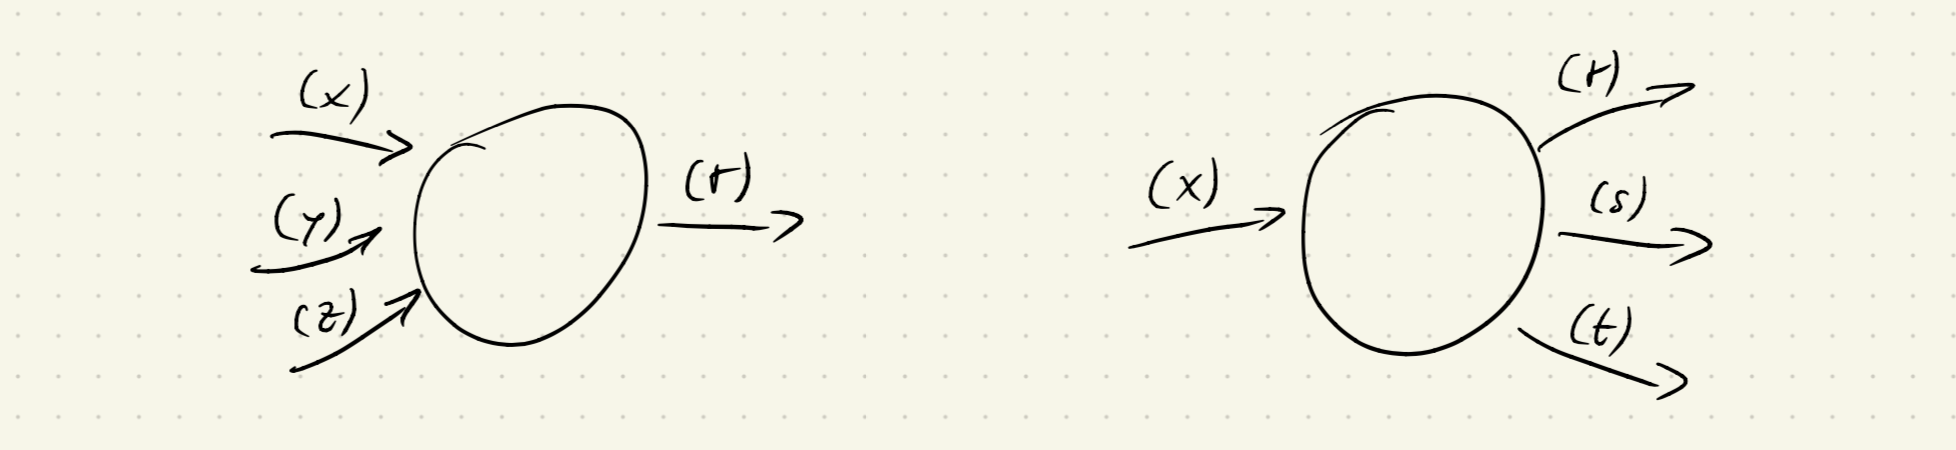 (x)
(y)
(z)
(r)
(x)
(r)
(s)
(t)